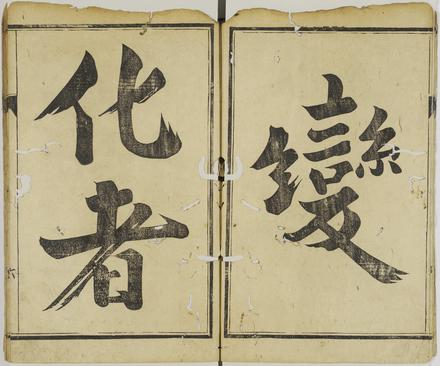 變
化者